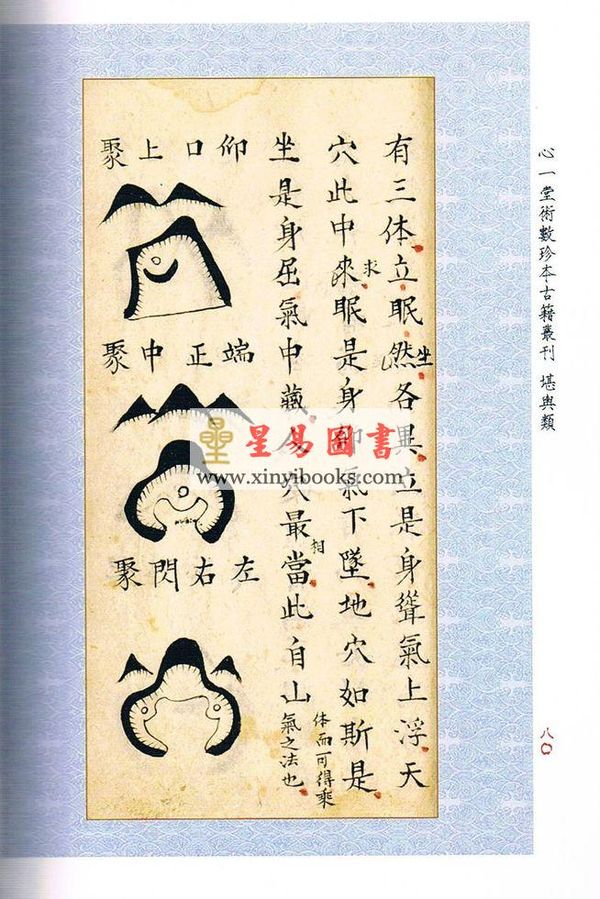 心一堂術數珍本古籍叢刊 堪輿類
八〇
有三体立眠然各異立是身聳氣上浮天
坐
穴此中來眠是身仰氣下墜地穴如斯是
求
坐是身屈氣中藏人穴最當此自山
相
体而可得乘
氣之法也
仰口上聚
端正中聚
左右閃聚
星易圖書
www.xinyibooks.com